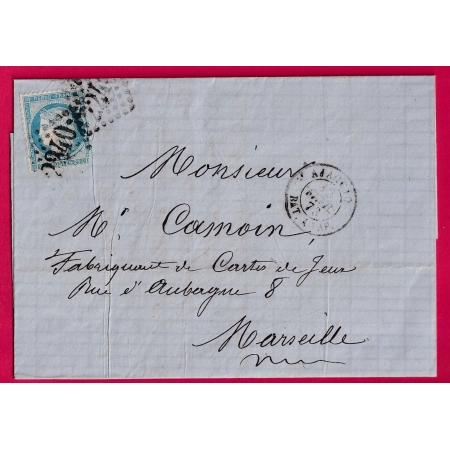 Monsieur
Mr Camoin,
Fabriquant de Cartes de Jeux
Rue d'Aubagne 8
Marseille